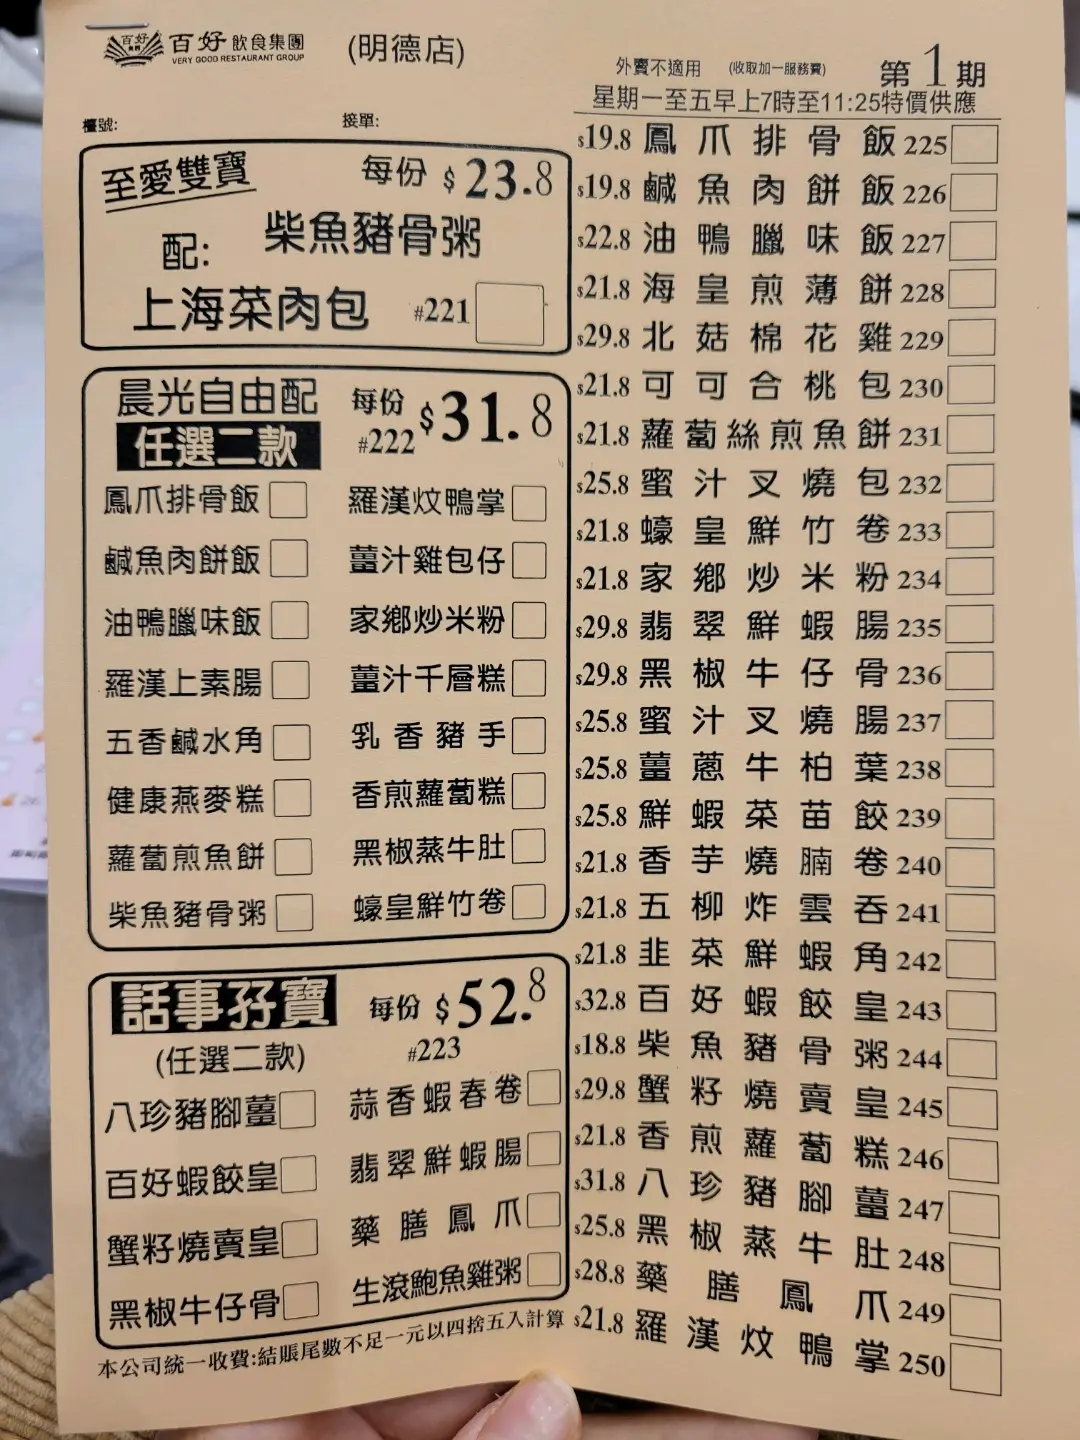 百好 飲食集團
VERY GOOD RESTAURANT GROUP
(明德店)
檯號:
接單:
至愛雙寶 每份 $23.8
配: 柴魚豬骨粥
上海菜肉包 #221
晨光自由配 每份 $31.8
任選二款 #222
鳳爪排骨飯 羅漢炆鴨掌
鹹魚肉餅飯 薑汁雞包仔
油鴨臘味飯 家鄉炒米粉
羅漢上素腸 薑汁千層糕
五香鹹水角 乳香豬手
健康燕麥糕 香煎蘿蔔糕
蘿蔔煎魚餅 黑椒蒸牛肚
柴魚豬骨粥 蠔皇鮮竹卷
話事孖寶 每份 $52.8
(任選二款) #223
八珍豬腳薑 蒜香蝦春卷
百好蝦餃皇 翡翠鮮蝦腸
蟹籽燒賣皇 藥膳鳳爪
黑椒牛仔骨 生滾鮑魚雞粥
本公司統一收費:結賬尾數不足一元以四捨五入計算
外賣不適用 (收取加一服務費) 第1期
星期一至五早上7時至11:25特價供應
$19.8 鳳爪排骨飯 225
$19.8 鹹魚肉餅飯 226
$22.8 油鴨臘味飯 227
$21.8 海皇煎薄餅 228
$29.8 北菇棉花雞 229
$21.8 可可合桃包 230
$21.8 蘿蔔絲煎魚餅 231
$25.8 蜜汁叉燒包 232
$21.8 蠔皇鮮竹卷 233
$21.8 家鄉炒米粉 234
$29.8 翡翠鮮蝦腸 235
$29.8 黑椒牛仔骨 236
$25.8 蜜汁叉燒腸 237
$25.8 薑蔥牛柏葉 238
$25.8 鮮蝦菜苗餃 239
$21.8 香芋燒腩卷 240
$21.8 五柳炸雲吞 241
$21.8 韭菜鮮蝦角 242
$32.8 百好蝦餃皇 243
$18.8 柴魚豬骨粥 244
$29.8 蟹籽燒賣皇 245
$21.8 香煎蘿蔔糕 246
$31.8 八珍豬腳薑 247
$25.8 黑椒蒸牛肚 248
$28.8 藥膳鳳爪 249
$21.8 羅漢炆鴨掌 250